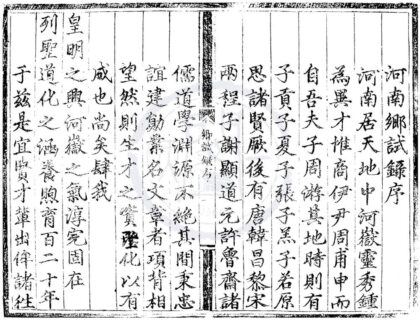 河南鄉試錄序
河南居天地中河嶽靈秀鍾
為異才惟商伊尹周甫申而
自吾夫子周游其地時則有
子貢子夏子張子羔子若原
思諸賢厥後有唐韓昌黎宋
兩程子謝顯道元許魯齋諸
試錄序
儒道學淵源未絕其間秉忠
誼建勳業名文章者項背相
望然則生才之實化以有
咸也尚矣肆我
皇明之興河嶽之氣淳完固在
列聖道化之涵養煦育百二十年
于茲是宜賢才輩出俾諸往